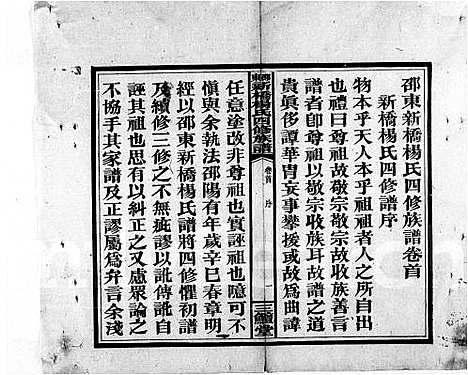 邵東新橋楊氏四修族譜卷首
新橋楊氏四修譜序
物本乎天人本乎祖祖者人之所自出
也禮曰尊祖故敬宗敬宗故收族善言
譜者卽尊祖以敬宗收族耳故譜之道
貴眞侈譚華胄妄事攀援或故爲曲諱
邵東新橋楊氏四修族譜
卷首
序
一
三鱣堂
任意塗改非尊祖也實誣祖也隐可不
愼與余執法邵陽有年歲辛巳春章明
經以邵東新橋楊氏譜將四修懼初譜
及續修三修之不無疵謬以訛傳訛自
誣其祖者有以糾正之又慮眾論之
不協手其家譜及正謬屬爲弁言余淺